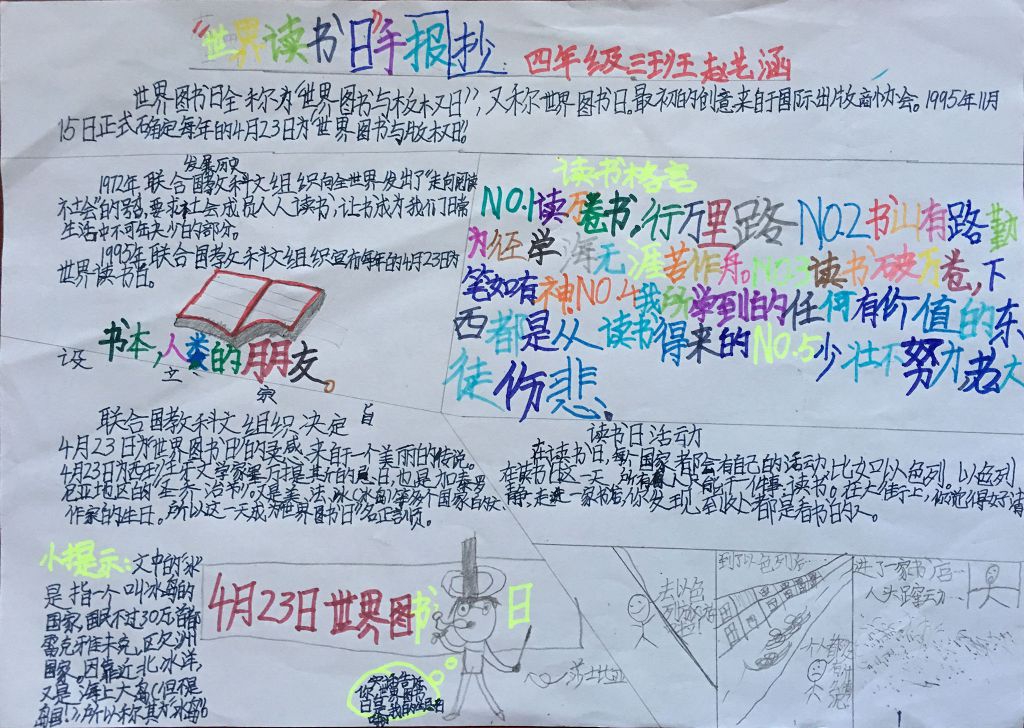 “世界读书日”手报抄 四年级三班赵艺涵
世界图书日全称为“世界图书与版权日”，又称世界图书日。最初的创意来自于国际出版商协会。1995年11月
15日正式确定每年的4月23日为“世界图书与版权日”。
发展历史
1972年，联合国教科文组织向全世界发出了“走向阅读
社会”的号召，要求社会成员人人读书，让书成为我们日常
生活中不可缺少的部分。
1995年，联合国教科文组织宣布每年的4月23日为
世界读书日。
书本，人类的朋友。
设 立 家 自
联合国教科文组织决定
4月23日为“世界图书日”的灵感，来自于一个美丽的传说。
4月23日为西班牙文学家塞万提斯的忌日，也是加泰罗
尼亚地区的
作家的生日。所以这一天成为“世界图书日”名正言顺。
读书格言
NO.1读万卷书，行万里路 NO.2书山有路勤
为径学海无涯苦作舟。NO.3读书破万卷，下
笔如有神NO.4我所学到的任何有价值的东
西都是从读书得来的NO.5少壮不努力，老大
徒伤悲。
读书日活动
在读书日，每个国家都会有自己的活动，比如以色列。以色列
在读书日这一天，所有人只能干一件事：读书。在大街上，你觉得好清
静，走进一家书店，你发现，到处都是看书的人。
小提示：文中的“冰”
是指一个叫冰岛的
国家，国民不过30万，首都
雷克雅未克，区欠洲
国家。因靠近北冰洋，
又是海上大岛（但不是
岛国！），所以称其为“冰岛”。
4月23日世界图书日
到了以色列后
进了一家书店
人头踩动
去以色